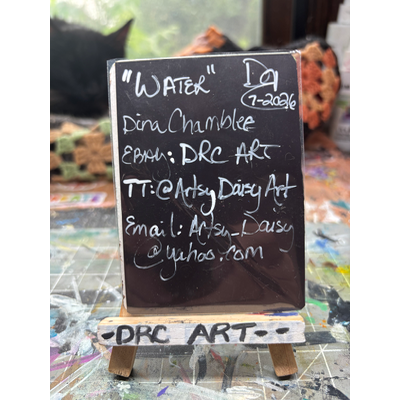 "WATER"
7-2026
Dina Chamblee
EBAY: DRC ART
TT: @Artsy Daisy Art
Email: Artsy_Daisy
@yahoo.com
-DRC ART--